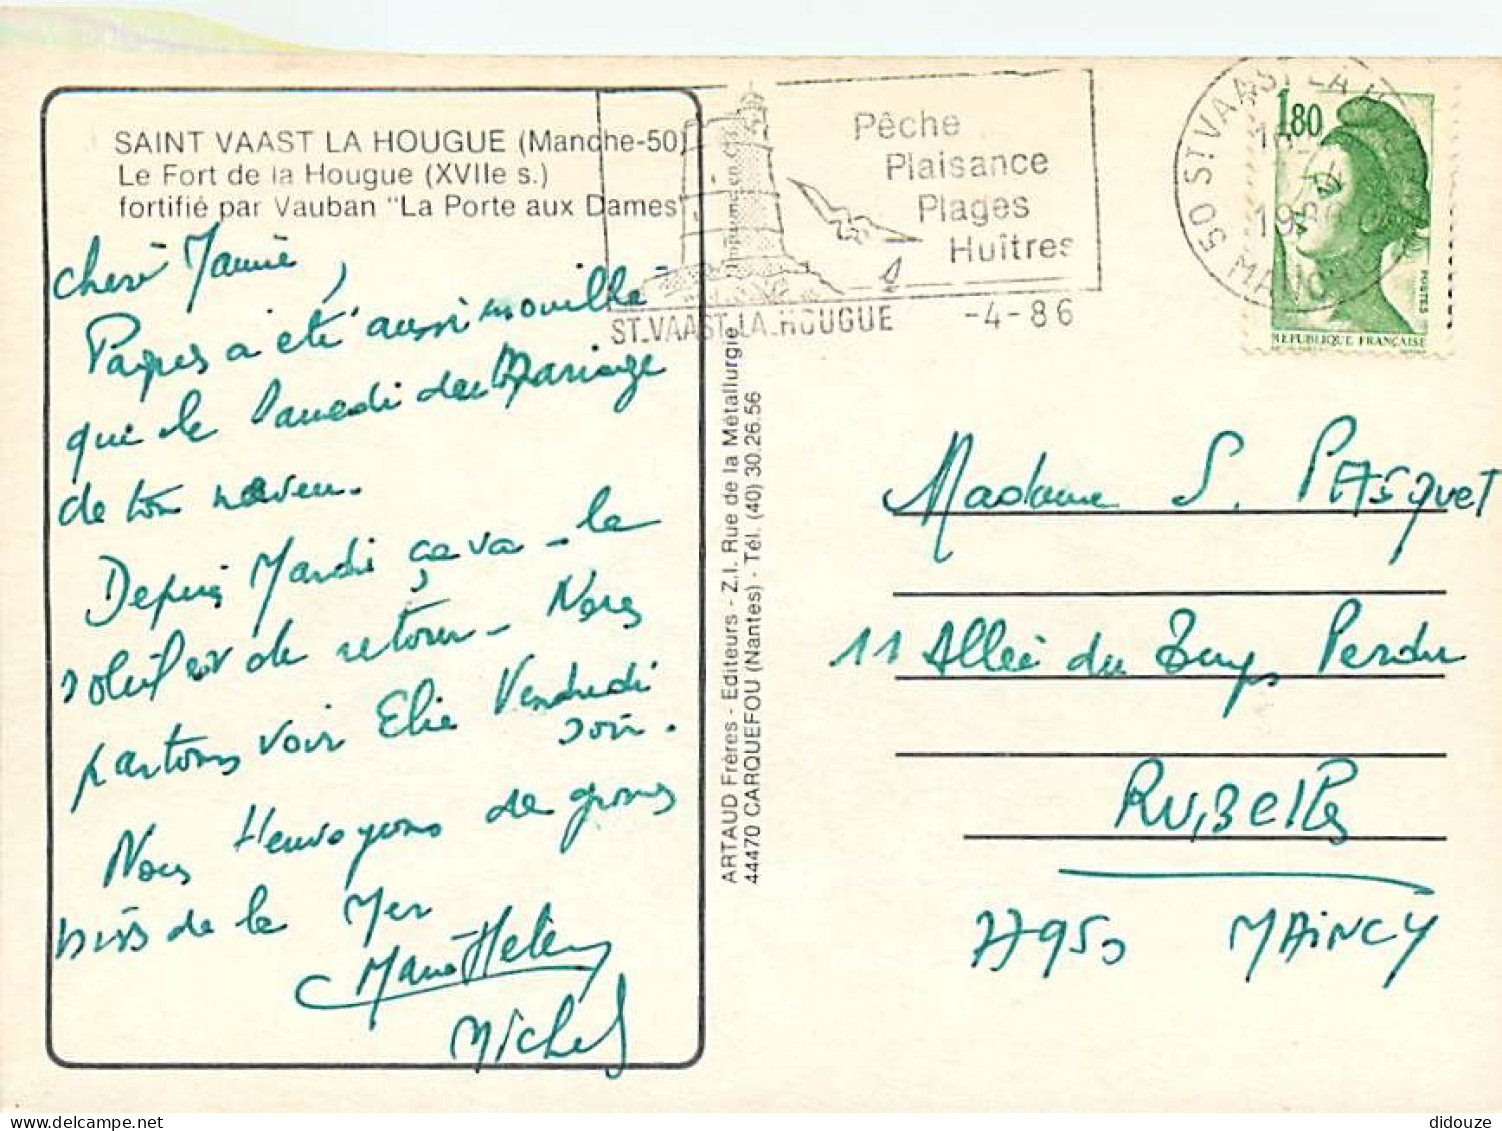 SAINT VAAST LA HOUGUE (Manche-50)
Le Fort de la Hougue (XVIIe s.)
fortifié par Vauban "La Porte aux Dames"
Chère Jamie,
Paques a été aussi mouillé
que le Samedi du Mariage
de ton neveu.
Depuis Mardi ça va - le
soleil est de retour - Nous
partons voir Elie Vendredi
soir.
Nous t'envoyons de gros
biss de la Mer
Marie Helene
Michel
Pêche
Plaisance
Plages
Huîtres
ST-VAAST-LA-HOUGUE -4-86
50 ST VAAST LA H
MANCHE
1,80
POSTES
REPUBLIQUE FRANÇAISE
ARTAUD Frères - Editeurs - Z.I. Rue de la Métallurgie
44470 CARQUEFOU (Nantes) - Tél. (40) 30.26.56
Madame S. PASQUET
11 Allée du Temps Perdu
RUBELLES
77950 MAINCY
didouze